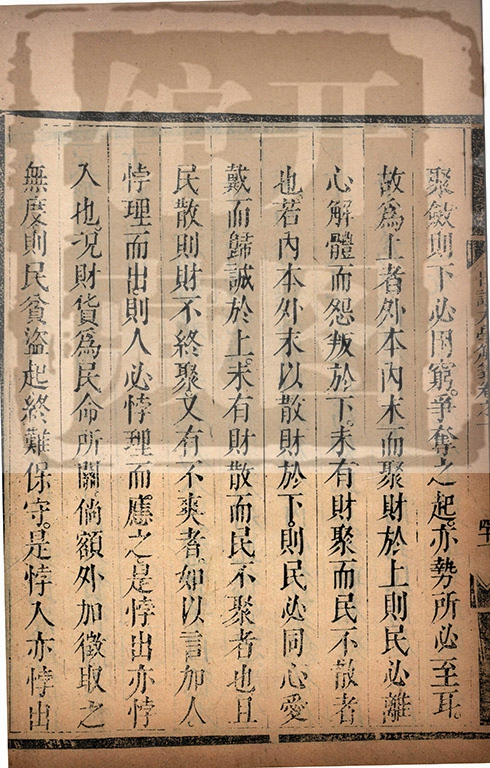 聚斂則下必困窮。爭奪之起。亦勢所必至耳。
故為上者外本內末而聚財於上則民必離
心解體而怨叛於下。未有財聚而民不散者
也。若內本外末以散財於下。則民必同心愛
戴而歸誠於上。未有財散而民不聚者也且
民散則財不終聚。又有不爽者。如以言加人。
悖理而出。則人必悖理而應之。是悖出亦悖
入也。況財貨為民命所關。倘額外加徵取之
無度則民貧盜起終難保守。是悖入亦悖出